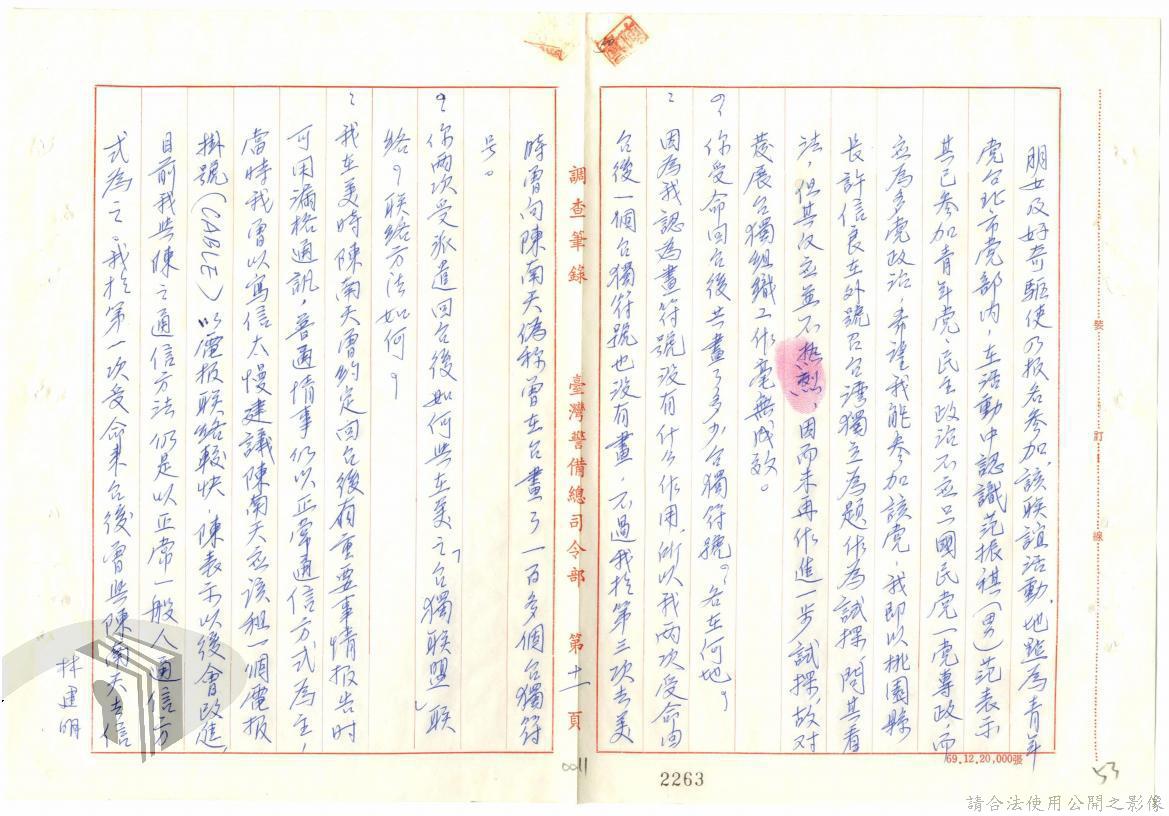 明女及好奇驅使乃报名参加該联誼活動,地點為青年
党台北市党部內,在活動中認識范振祺(男)范表示
其已参加青年党,民主政治不应只國民党一党專政而
应為多党政治,希望我能参加該党,我即以桃園縣
長許信良在外號召台灣獨立為題作為試探,問其看
法,但其反应並不热烈,因而未再作進一步試探,故对
發展台獨組織工作毫無成效。
?你受命回台後共畫了多少台獨符號?各在何地?
:因為我認為畫符號没有什么作用,所以我兩次受命由
台後一個台獨符號也没有畫,不過我於第三次去美
調查筆錄 臺灣警備總司令部 第十一頁
時曾向陳南天偽称曾在台畫了一百多個台獨符
号。
?你兩次受派遣回台後如何與在美之「台獨联盟」联
絡?联絡方法如何?
:我在美時陳南天曾約定回台後有重要事情报告時
可用漏格通訊,普通情事仍以正常通信方式為主,
當時我曾以寫信太慢建議陳南天应該租一個電报
掛號(CABLE)以電报联絡較快,陳表示以後會改進,
目前我與陳之通信方法仍是以正常一般人通信方
式為之。我於第一次受命來台後曾與陳南天去信
林建明
裝 訂 線
69.12.20,000張
53
0011
2263
請合法使用公開之影像